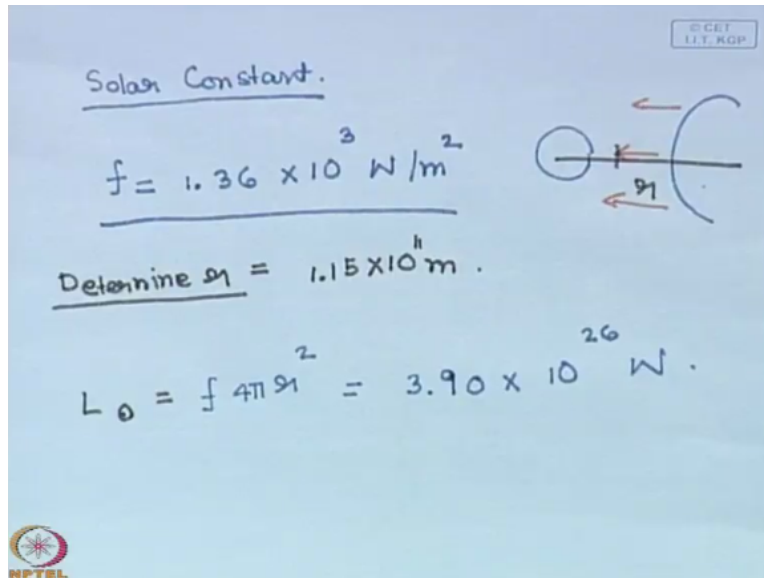 © CET
I.I.T. KGP
Solar Constant.
f = 1.36 × 10³ W/m²
r
Determine r = 1.15 × 10¹¹ m.
L⊙ = f 4π r² = 3.90 × 10²⁶ W.
NPTEL